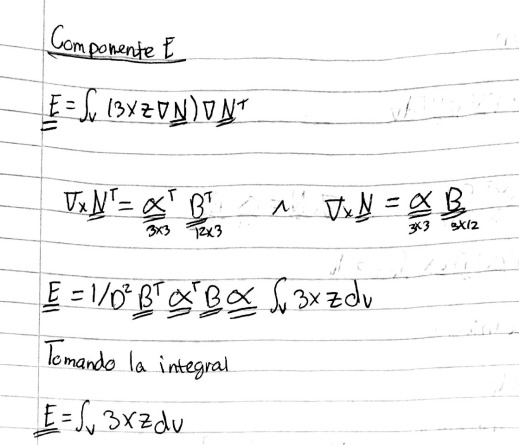 Componente E
E = ∫v (3xz∇N)∇Nᵀ
∇xNᵀ = αᵀ Bᵀ ∧ ∇xN = α B
3x3 12x3 3x3 3x12
E = 1/D² Bᵀ αᵀ B α ∫v 3xz dv
Tomando la integral
E = ∫v 3xz dv